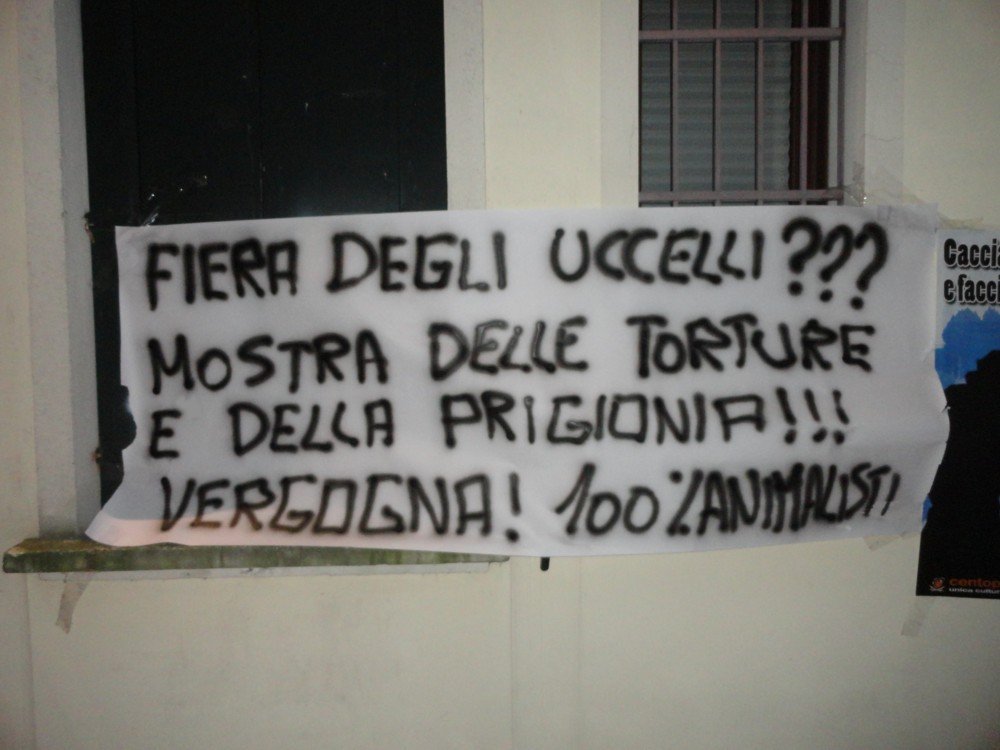 FIERA DEGLI UCCELLI???
MOSTRA DELLE TORTURE
E DELLA PRIGIONIA!!!
VERGOGNA! 100%ANIMALISTI
Caccia
e facci
centop
unica cultur